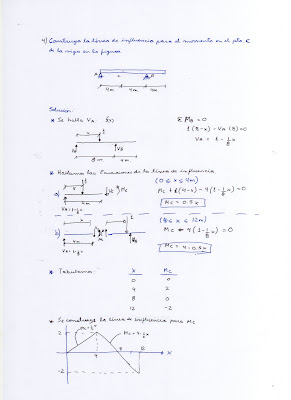 4) Construya la línea de influencia para el momento en el pto. C
de la viga en la figura.
A
C
B
4m 4m 4m
Solución:
* Se halla VA: f(x)
Σ MB = 0
1 (8-x) - VA (8) = 0
VA = 1 - x/8
x
1
VA
VB
8m 4m
* Hallamos las Ecuaciones de la línea de influencia
a)
x
1
Mc
4m
VA = 1 - x/8
(0 ≤ x ≤ 4m)
Mc + 1(4-x) - 4(1 - x/8) = 0
Mc = 0.5x
b)
x
1
Mc
4m
VA = 1 - x/8
VB
(4 ≤ x ≤ 12m)
Mc - 4(1 - x/8) = 0
Mc = 4 - 0.5x
* Tabulamos:
X Mc
0 0
4 2
8 0
12 -2
* Se construye la línea de influencia para Mc
2
Mc = 4 - 1/2 x
4
8
12
X
-2